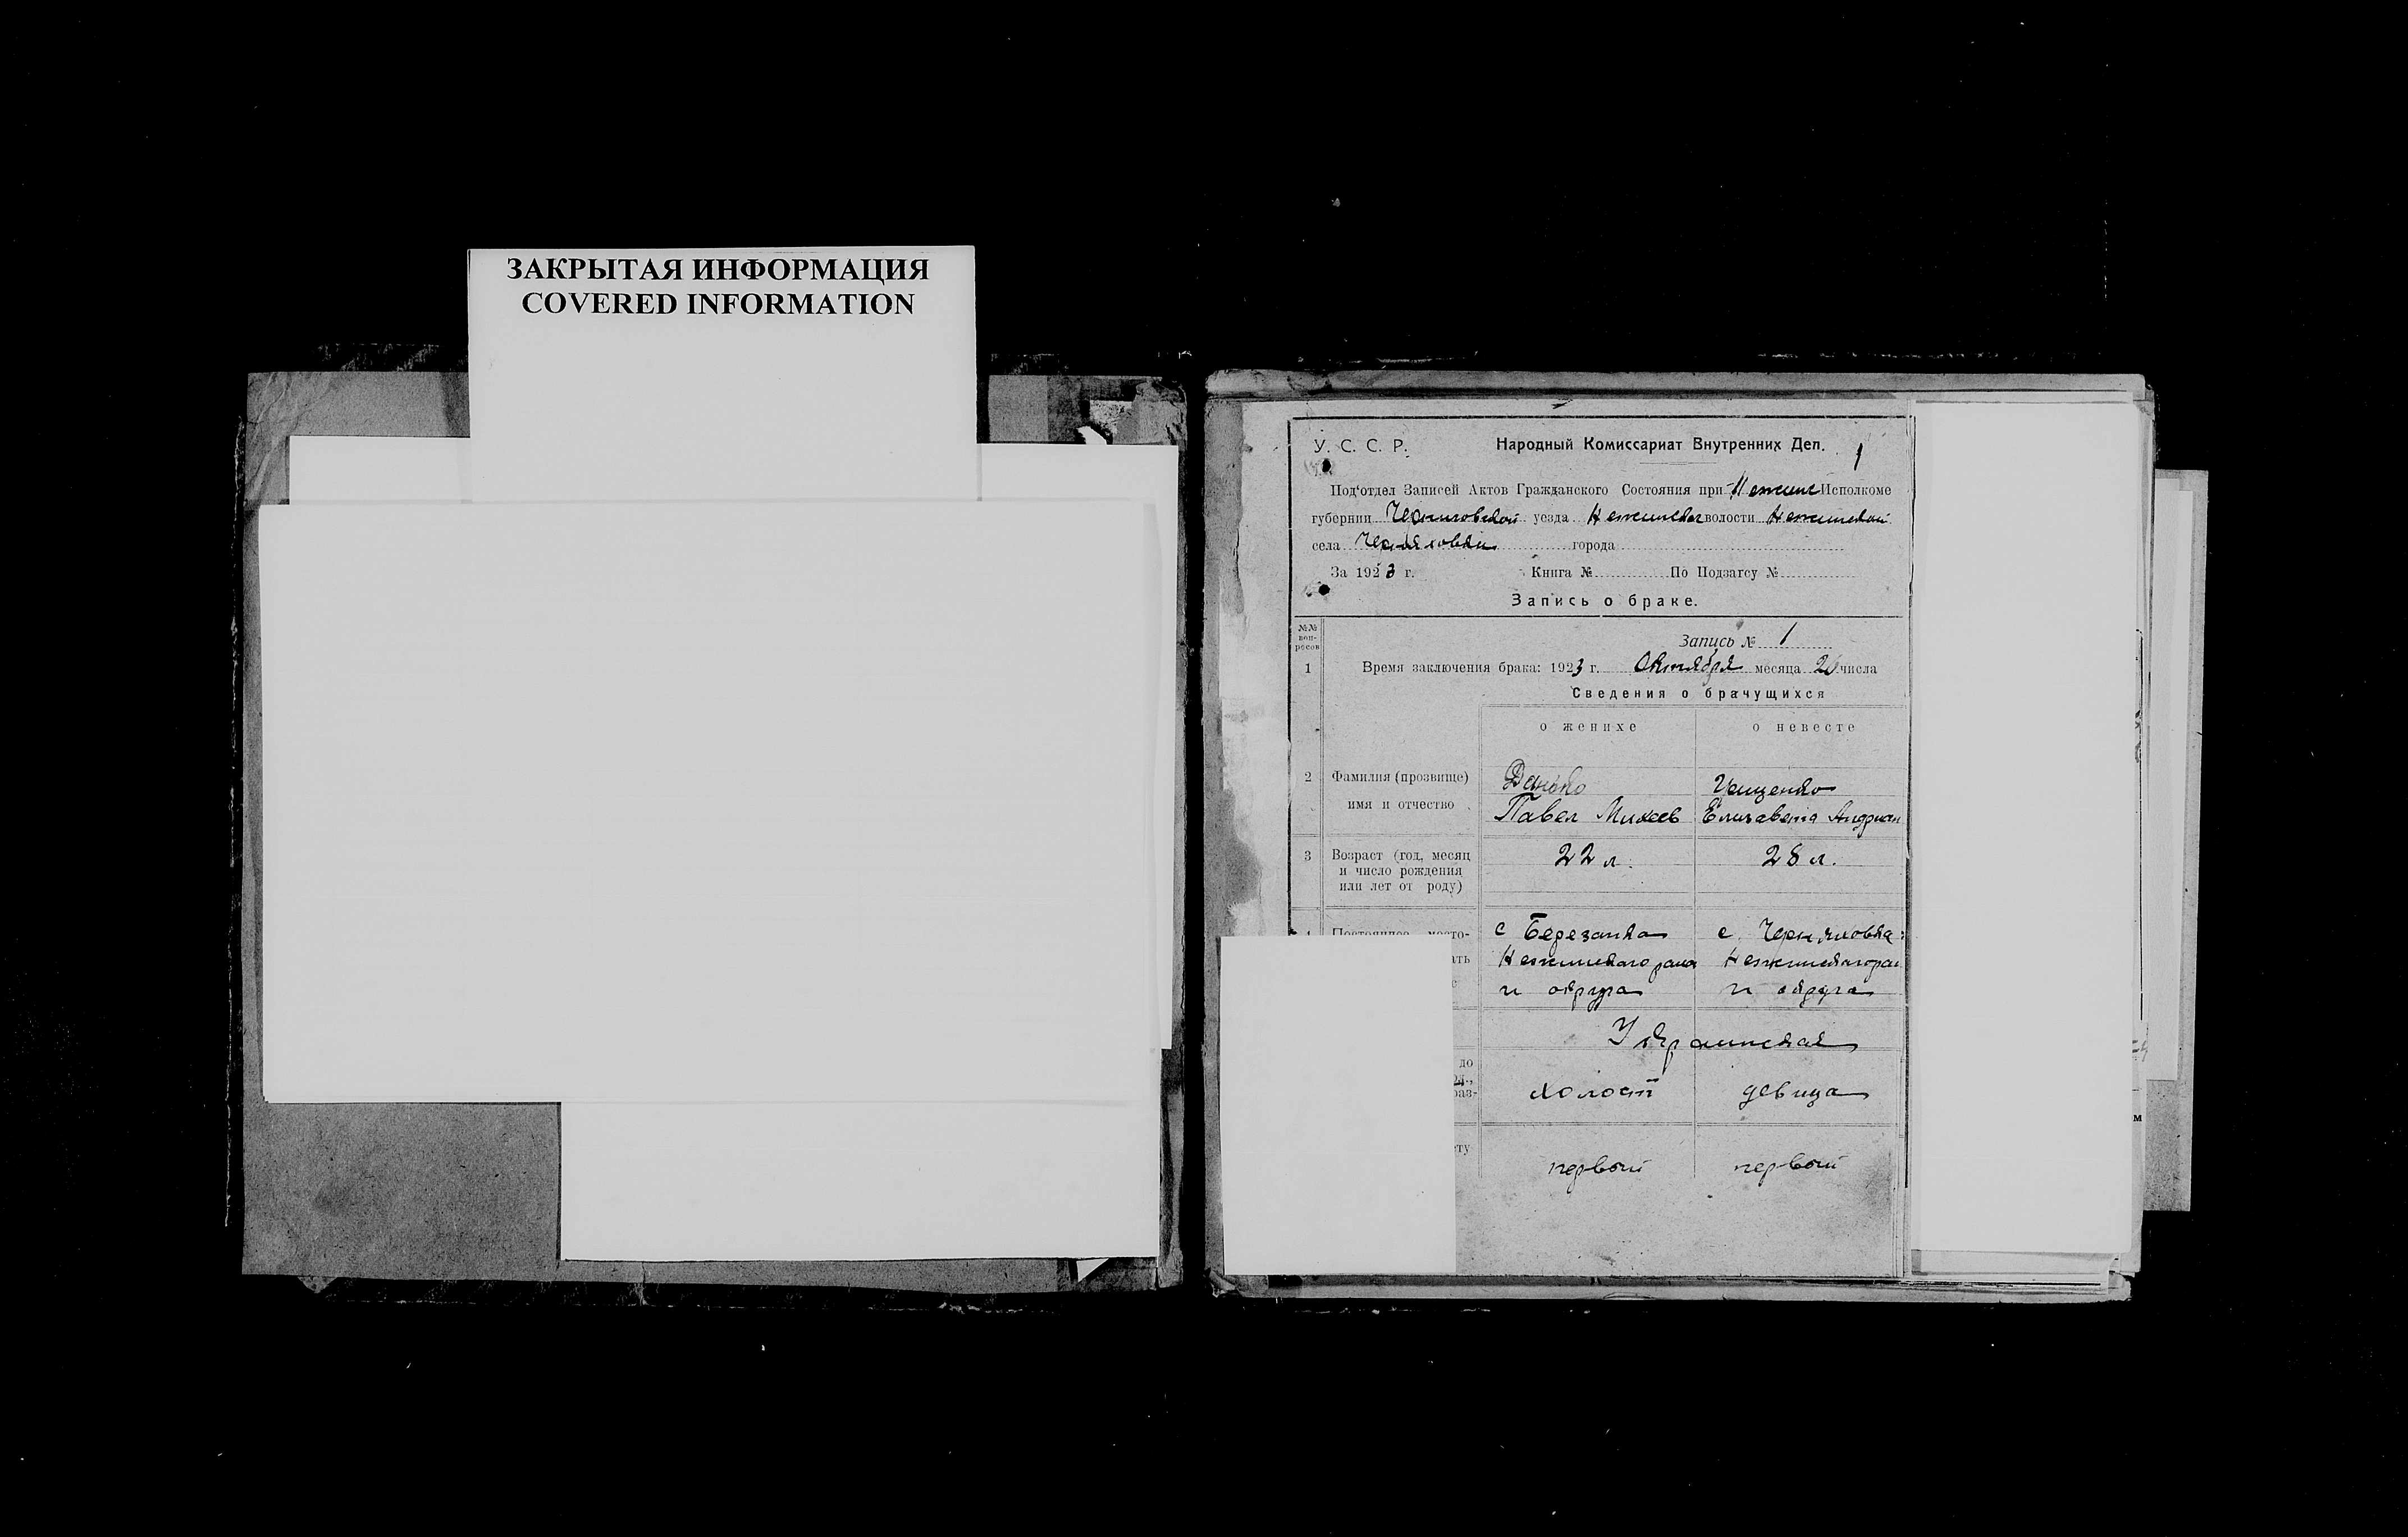 ЗАКРЫТАЯ ИНФОРМАЦИЯ
COVERED INFORMATION
У. С. С. Р. Народный Комиссариат Внутренних Дел. 1
Под'отдел Записей Актов Гражданского Состояния при Нежине Исполкоме
губернии Черниговской уезда Неженской волости Неженской
села Черняховки города
За 1923 г. Книга № По Подзагсу №
Запись о браке.
№№ вопросов
Запись № 1
1 Время заключения брака: 1923 г. Октября месяца числа
Сведения о брачущихся
о женихе о невесте
2 Фамилия (прозвище)
имя и отчество Павел Михеев Елизавета Андриан
3 Возраст (год, месяц 22 л. 28 л.
и число рождения
или лет от роду)
с Березанка с. Черняховка
Неженского района Неженского рай
и округа и округа
Украинская
до
раз- холост девица
ту
первый первый